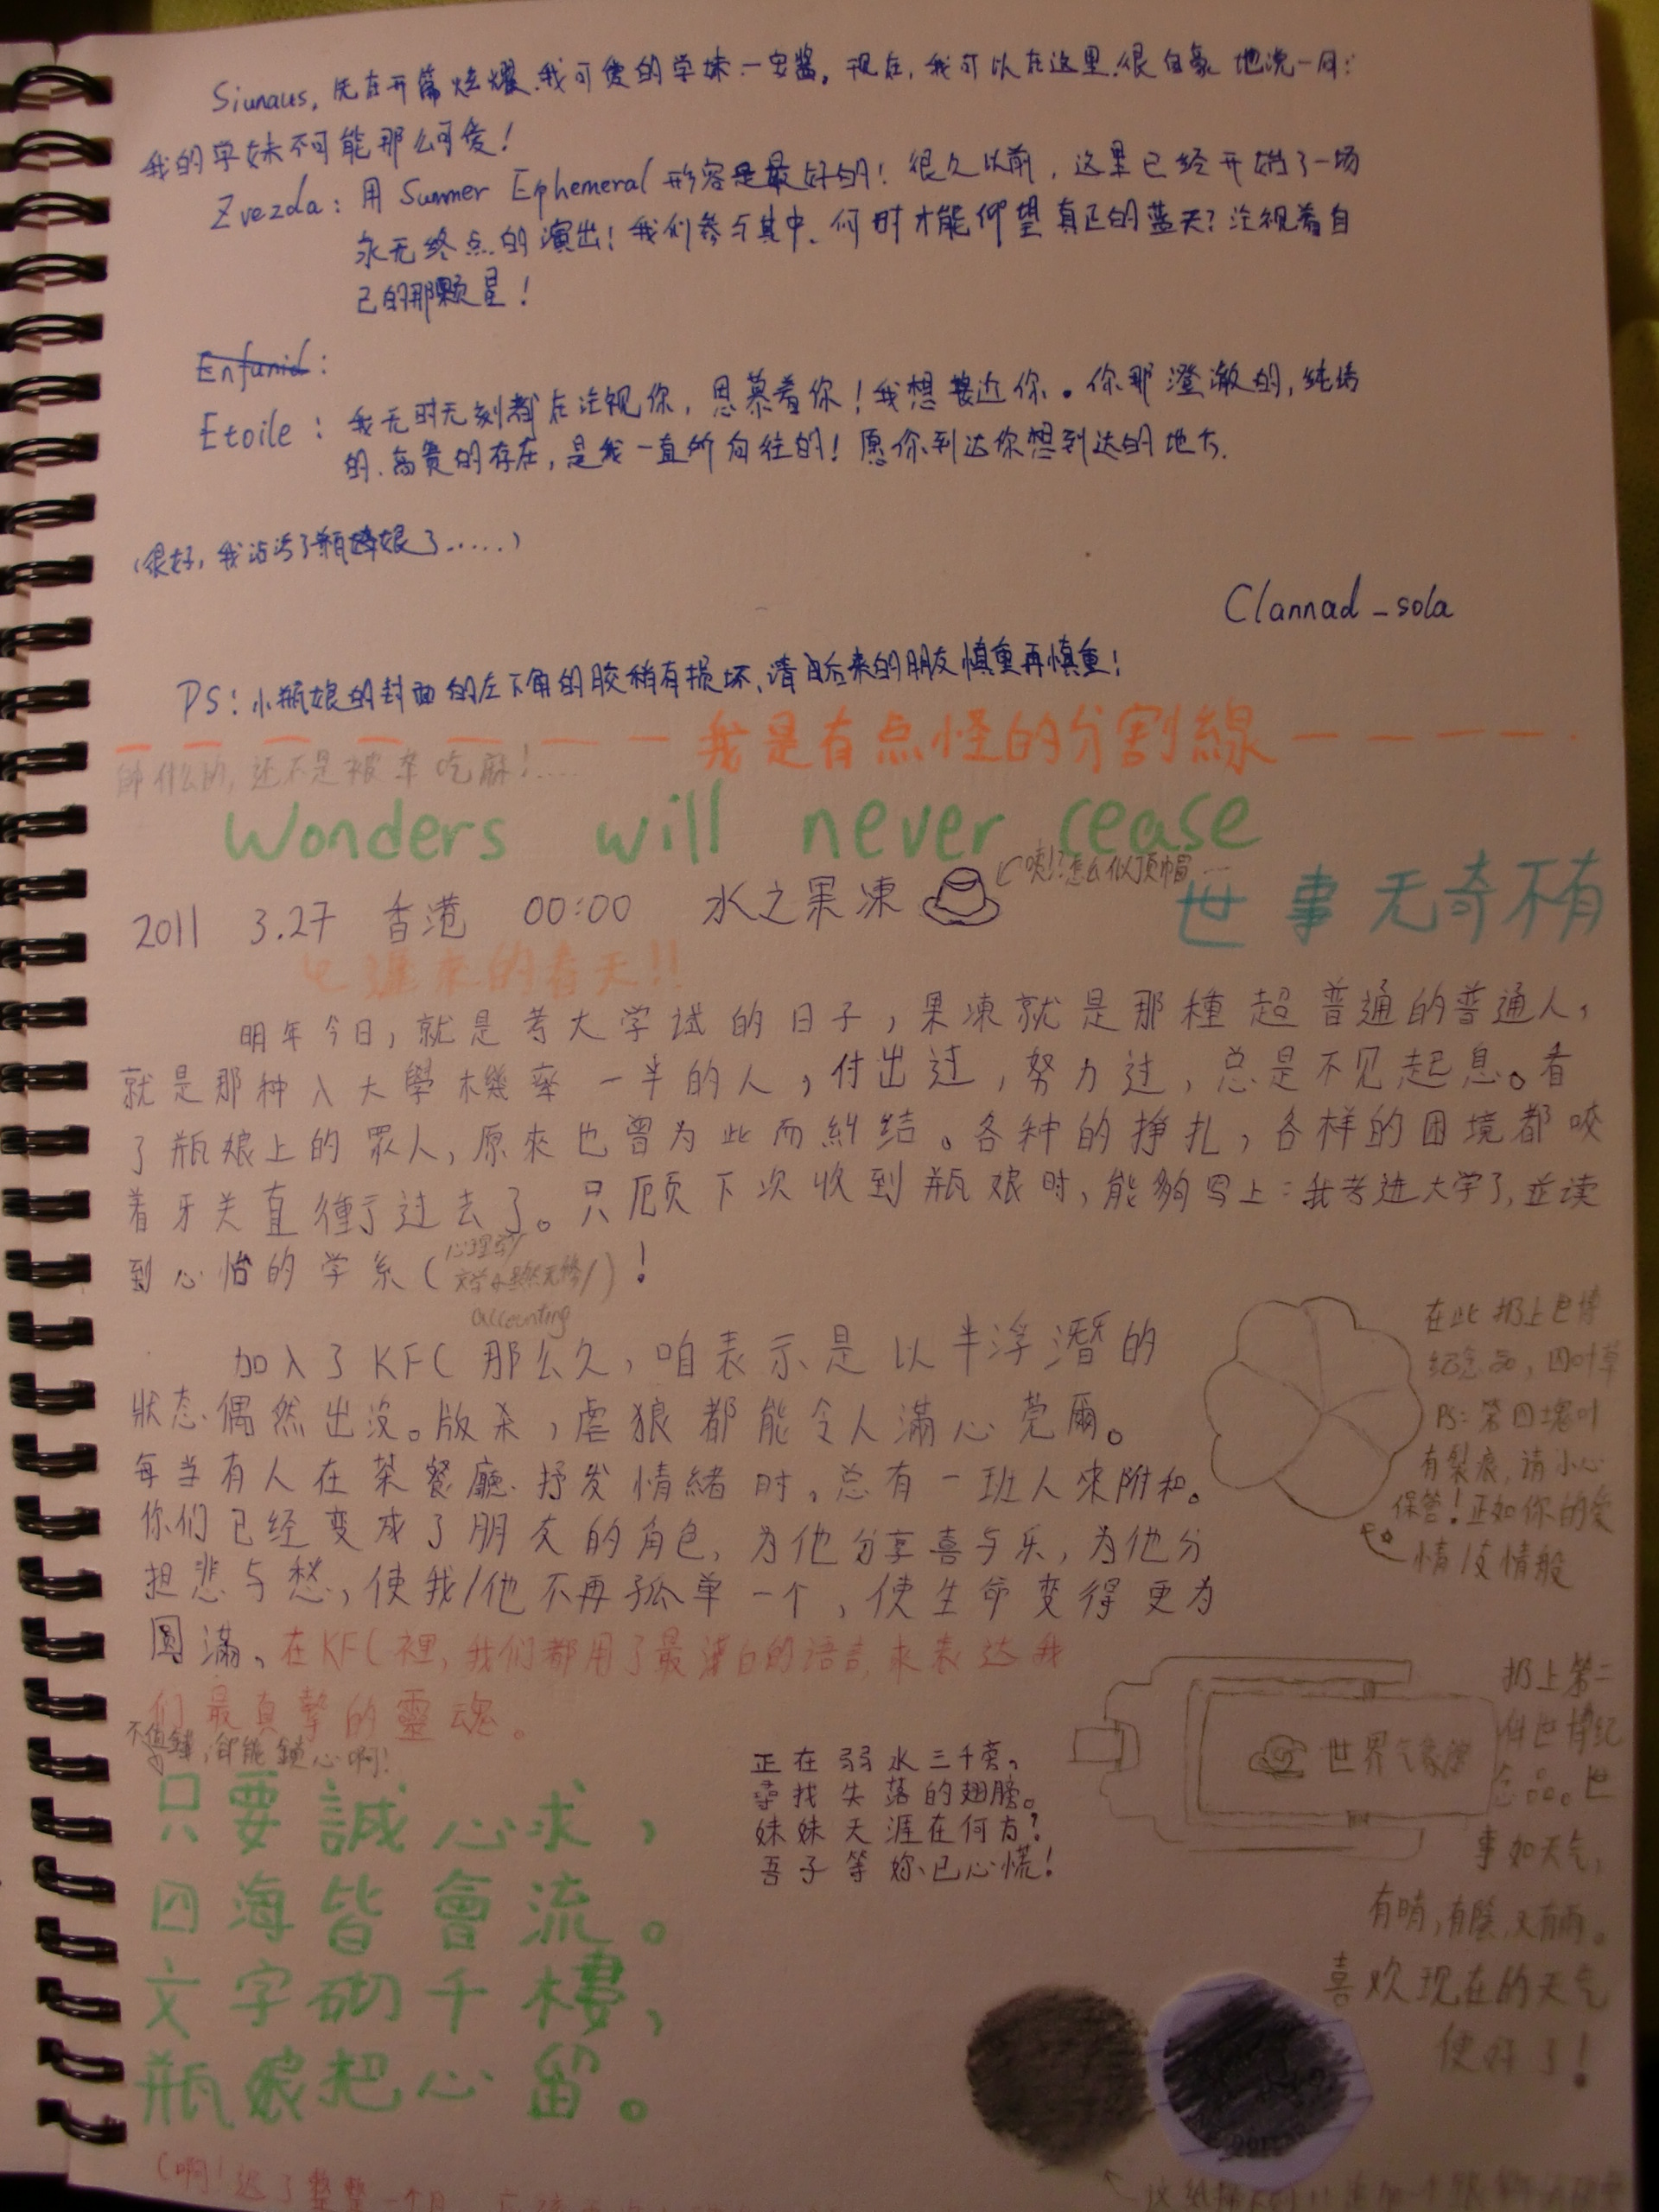 Siunaus, 先在开篇炫耀.我可爱的学妹一安酱。现在,我可以在这里.很自豪 地说一同:
我的学妹不可能那么可爱!
Zvezda: 用 Summer Ephemeral 形容是最好的! 很久以前, 这里已经开始了一场
永无终点的演出! 我们参与其中. 何时才能仰望真正的蓝天? 注视着自
己的那颗星!
Etoile : 我无时无刻都在注视你, 思慕着你! 我想接近你。你那澄澈的, 纯洁
的. 高贵的存在, 是我一直所向往的! 愿你到达你想到达的地方.
(很好, 我沾污了瓶娘了......)
Clannad_sola
PS: 小瓶娘的封面的左下角的胶稍有损坏, 请后来的朋友慎重再慎重!
我是有点怪的分割線
什么的, 还不是被 拿 吃麻!....
Wonders will never cease
咦!?怎么似顶帽...
2011 3.27 香港 00:00 水之果凍
世事无奇不有
遲來的春天!!
明年今日, 就是考大学试的日子, 果凍就是那種超普通的普通人,
就是那种入大學機率一半的人, 付出过, 努力过, 总是不见起息。看
了瓶娘上的眾人, 原來也曾为此而糾结。各种的挣扎, 各样的困境都咬
着牙关直衝了过去了。只愿下次收到瓶娘时, 能夠写上: 我考进大学了, 並读
到心怡的学系( )!
心理学/
accounting
加入了KFC那么久, 咱表示是以半浮潛的
狀态偶然出没。版杀, 虐狼都能令人滿心莞爾。
每当有人在茶餐廳抒发情緒时, 总有一班人來附和。
你们已经变成了朋友的角色, 为他分享喜与乐, 为他分
担悲与愁, 使我/他不再孤单一个, 使生命变得更为
圆滿。在KFC裡, 我们都用了最薄白的语言, 來表达我
们最真摯的靈魂。
在此 扔上世博
纪念品, 四叶草
PS: 第四塊叶
有裂痕, 请小心
保管! 正如你的爱
情/友情般
不值錢, 卻能鎖心啊!
只要誠心求,
四海皆會流。
文字砌千樓,
瓶娘把心留。
正在弱水三千旁。
尋找失落的翅膀。
妹妹天涯在何方?
吾子等妳已心慌!
世界气象馆
扔上第二
件世博纪
念品。世
事如天气,
有晴, 有陰, 又有雨。
喜欢现在的天气
便好了!
(啊! 迟了整整一个月